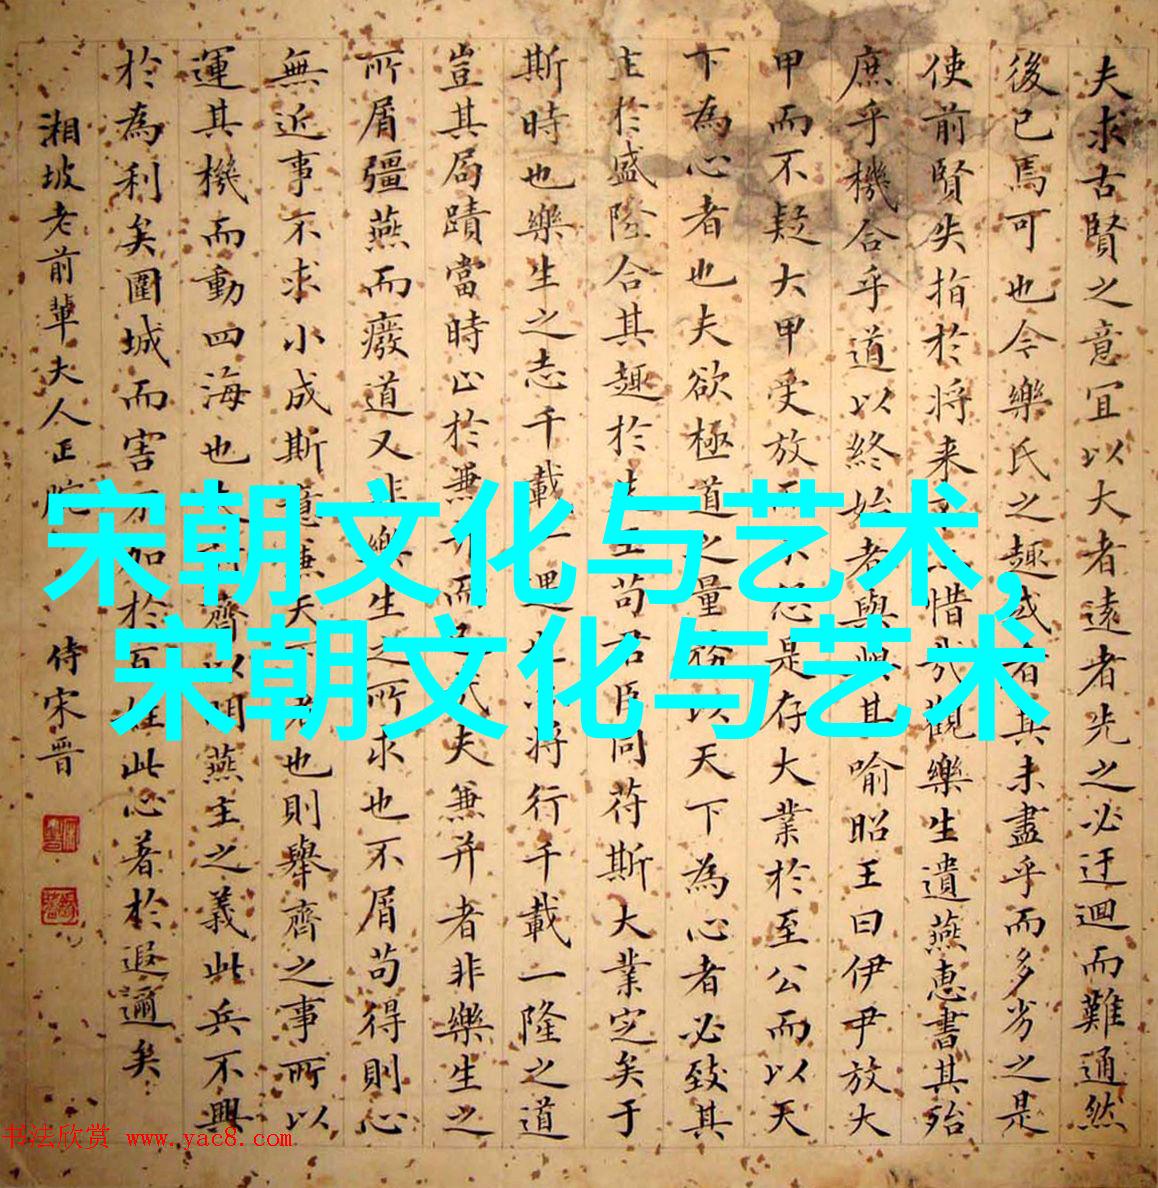 夫求古賢之意宜以大者遠者先之必迂迴而難通然
後已焉可也今樂氏之趣或者其未盡乎而多劣之是
使前賢失指於將来不亦惜哉觀樂生遺燕惠書其殆
庶乎機合乎道以終始者與其喻昭王曰伊尹放大
甲而不疑大甲受放而不怨是存大業於至公而以天
下為心者也夫欲極道之量務以天下為心者必致其
主於盛隆合其趣於先王苟君臣同苻斯大業定矣于
斯時也樂生之志千載一遇也亦將行千載一隆之道
豈其局蹟當時止於兼并而已哉夫兼并者非樂生之
所屑彊燕而廢道又非樂生之所求也不屑苟得則心
無近事不求小成斯意兼天下者也則舉齊之事所以
運其機而動四海也夫討齊以明燕主之義此兵不興
於為利矣圍城而害不加於百姓此心著於遐邇矣
湘坡老前輩夫人正腕
侍宋晋
宋朝文化与艺术,
宋朝文化与艺术
书法欣赏 www.yac8.com